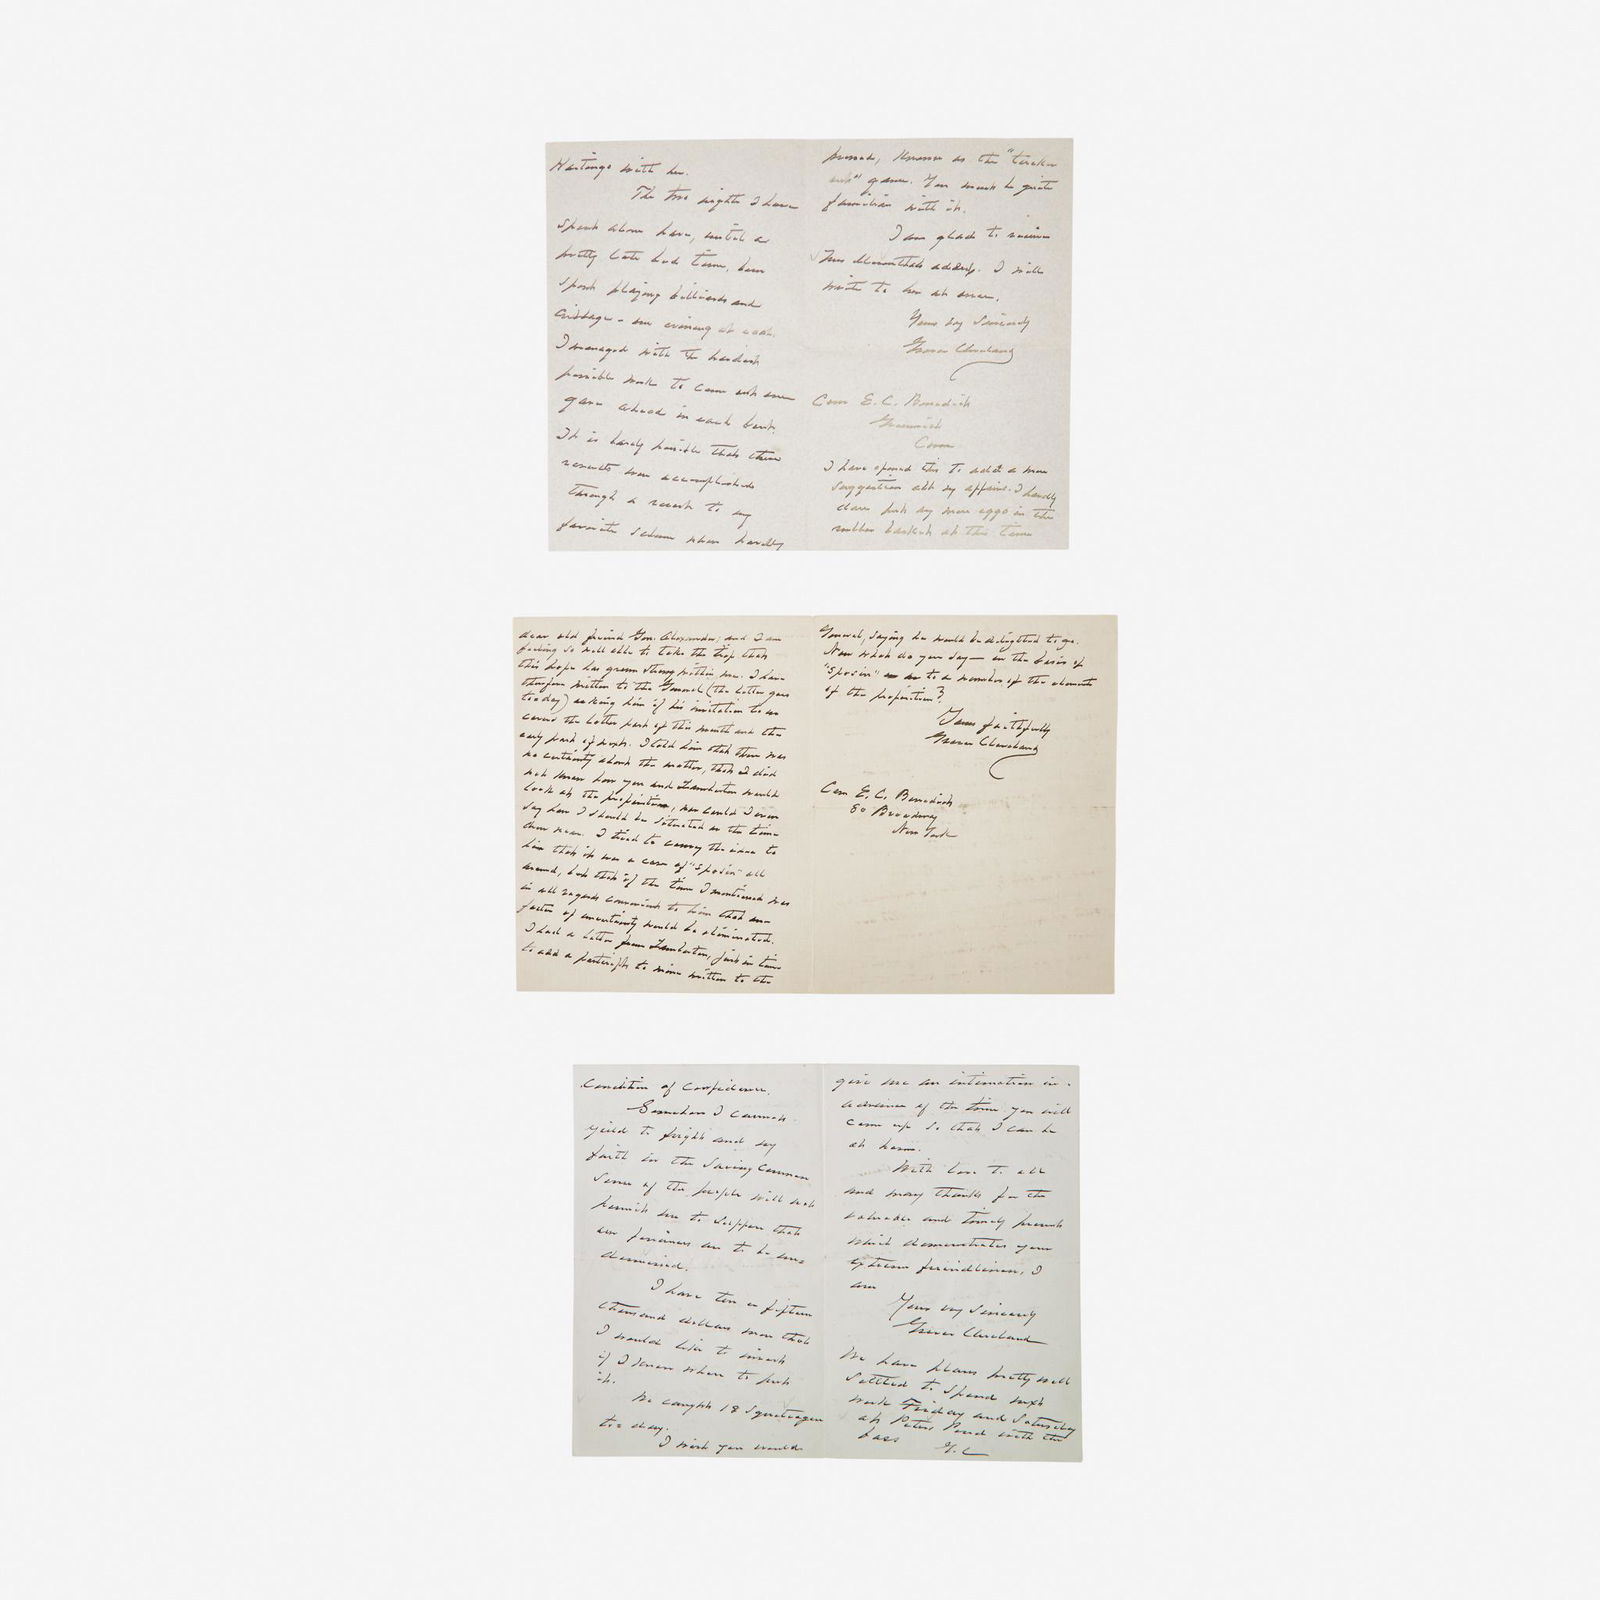 Hastings with her.
The two nights I have
spent alone here, until a
pretty late bed time, been
spent playing billiards and
cribbage - one evening at each.
I managed with the hardest
possible work to come out one
game ahead in each bout.
It is hardly possible that these
results were accomplished
through a resort to my
favorite scheme when hardly
pressed, known as the "tucker
out" game. You must be quite
familiar with it.
I am glad to receive
Mrs address. I will
write to her at once.
Yours very Sincerely
Grover Cleveland
Com E. C. Benedict
Greenwich
Conn
I have opened this to add a mere
suggestion abt my affairs. I hardly
dare put any more eggs in the
rubber basket at this time
dear old friend Gen. Alexander; and I am
feeling so well able to take the trip that
this hope has grown strong within me. I have
therefore written to the General (the letter goes
to day) asking him if his invitation to us
covered the latter part of this month and the
early part of next. I told him that there was
no certainty about the matter, that I did
not know how you and Lamberton would
look at the proposition, nor could I even
say how I should be situated at the time
then near. I tried to convey the idea to
him that it was a case of "sposin" all
around, but that if the time I mentioned was
in all regards convenient to him that one
factor of uncertainty would be eliminated.
I had a letter from Lamberton, just in time
to add a postscript to mine written to the
General, saying he would be delighted to go.
Now what do you say — on the basis of
"sposin" as to a number of the elements
of the proposition?
Yours faithfully
Grover Cleveland
Com E. C. Benedict
80 Broadway
New York
condition of confidence.
Somehow I cannot
yield to fright and my
faith in the saving common
sense of the people will not
permit me to suppose that
our forimers are to be ours
I have ten or fifteen
thousand dollars more that
I would like to invest
if I knew where to put
it.
We caught 18 Squeteague
to day.
I wish you would
give me an intimation in
advance of the time you will
come up so that I can be
at home.
With love to all
and many thanks for the
valuable and timely present
which demonstrates your
extreme friendliness, I
am
Yours very sincerely
Grover Cleveland
We have plans pretty well
settled to spend next
week Friday and Saturday
at Peters Pond with the
bass G. C.